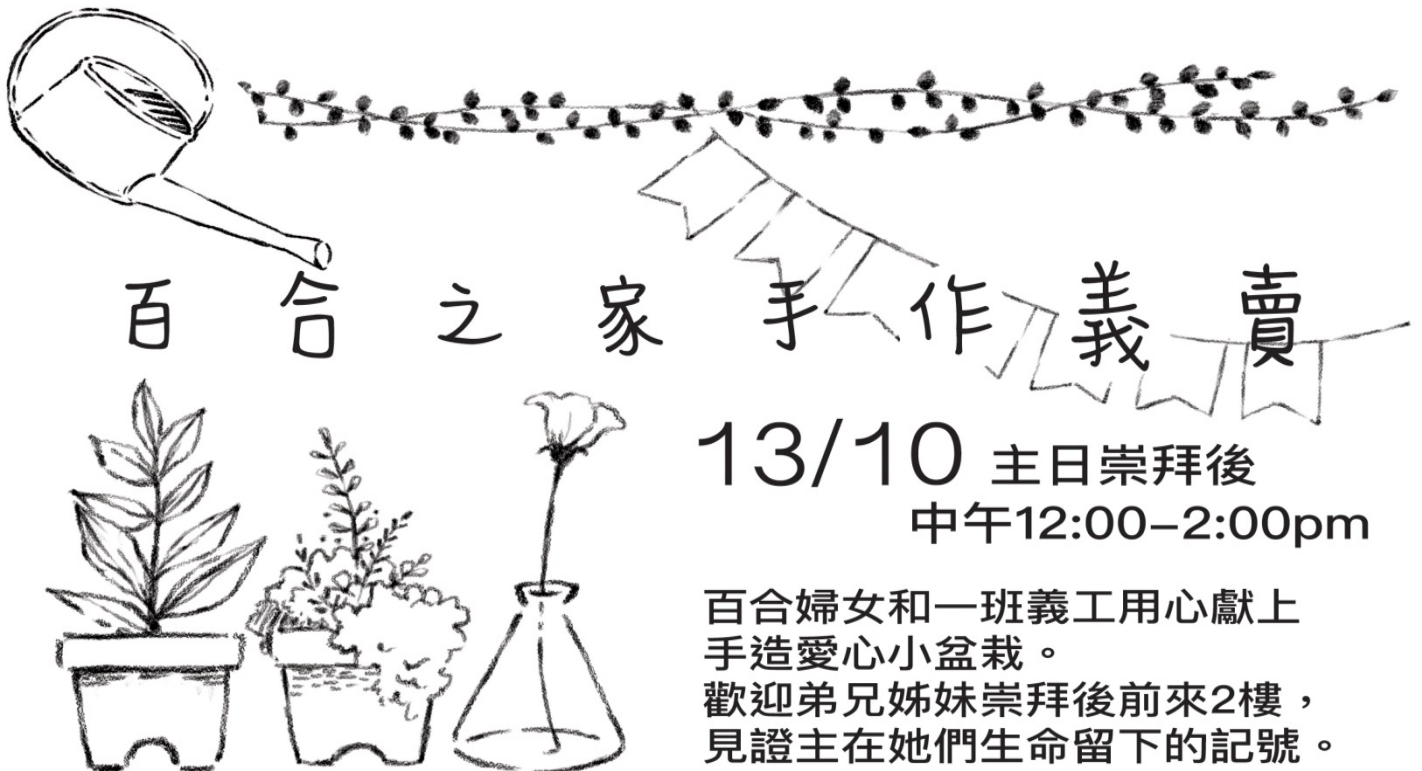 百合之家手作義賣
13/10 主日崇拜後
中午12:00–2:00pm
百合婦女和一班義工用心獻上
手造愛心小盆栽。
歡迎弟兄姊妹崇拜後前來2樓，
見證主在她們生命留下的記號。